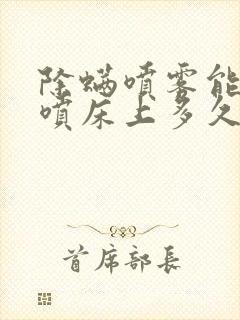 除螨喷雾能
喷床上多久
首席部长